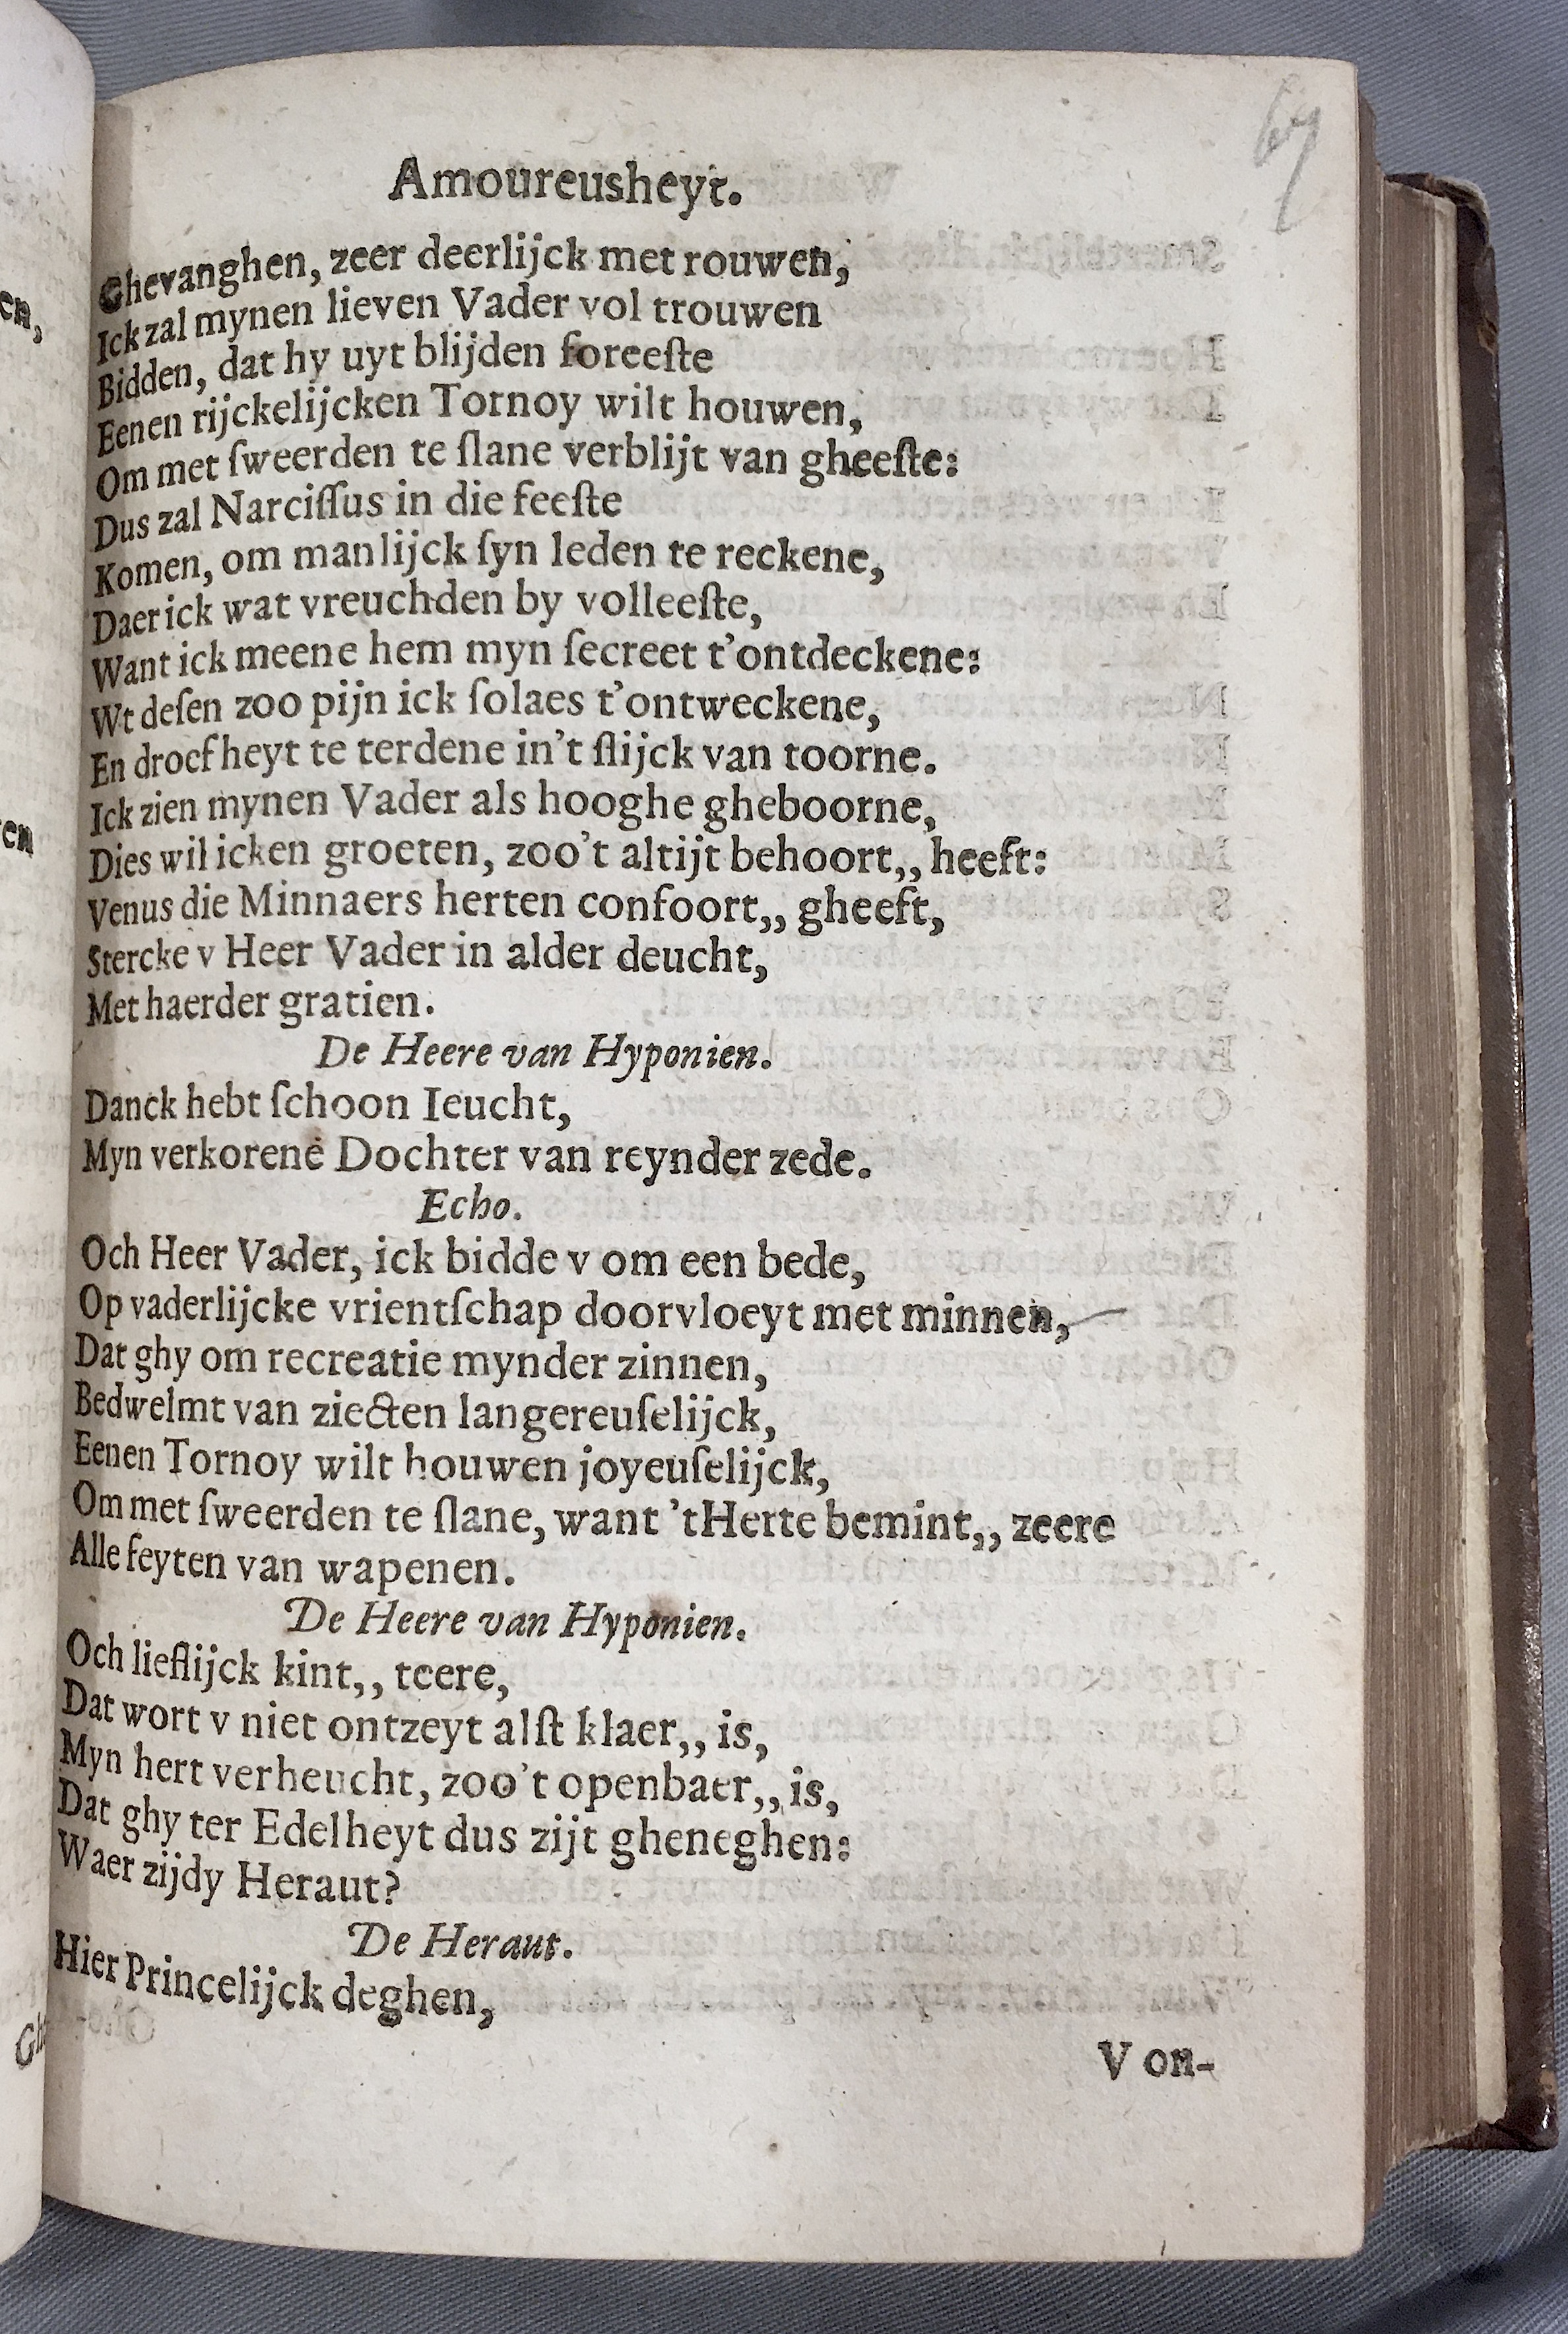 67
Amoureusheyt.
Ghevanghen, zeer deerlijck met rouwen,
Ick zal mynen lieven Vader vol trouwen
Bidden, dat hy uyt blijden foreeſte
Eenen rijckelijcken Tornoy wilt houwen,
Om met ſweerden te ſlane verblijt van gheeſte:
Dus zal Narciſſus in die feeſte
Komen, om manlijck ſyn leden te reckene,
Daer ick wat vreuchden by volleeſte,
Want ick meene hem myn ſecreet t'ontdeckene:
Wt deſen zoo pijn ick ſolaes t'ontweckene,
En droefheyt te terdene in't ſlijck van toorne.
Ick zien mynen Vader als hooghe gheboorne,
Dies wil icken groeten, zoo't altijt behoort,, heeft:
Venus die Minnaers herten confoort,, gheeft,
Stercke v Heer Vader in alder deucht,
Met haerder gratien.
De Heere van Hyponien.
Danck hebt ſchoon Ieucht,
Myn verkorene Dochter van reynder zede.
Echo.
Och Heer Vader, ick bidde v om een bede,
Op vaderlijcke vrientſchap doorvloeyt met minnen,
Dat ghy om recreatie mynder zinnen,
Bedwelmt van ziecten langereuſelijck,
Eenen Tornoy wilt houwen joyeuſelijck,
Om met ſweerden te ſlane, want 'tHerte bemint,, zeere
Alle feyten van wapenen.
De Heere van Hyponien.
Och lieflijck kint,, teere,
Dat wort v niet ontzeyt alſt klaer,, is,
Myn hert verheucht, zoo't openbaer,, is,
Dat ghy ter Edelheyt dus zijt gheneghen:
Waer zijdy Heraut?
De Heraut.
Hier Princelijck deghen,
V on-